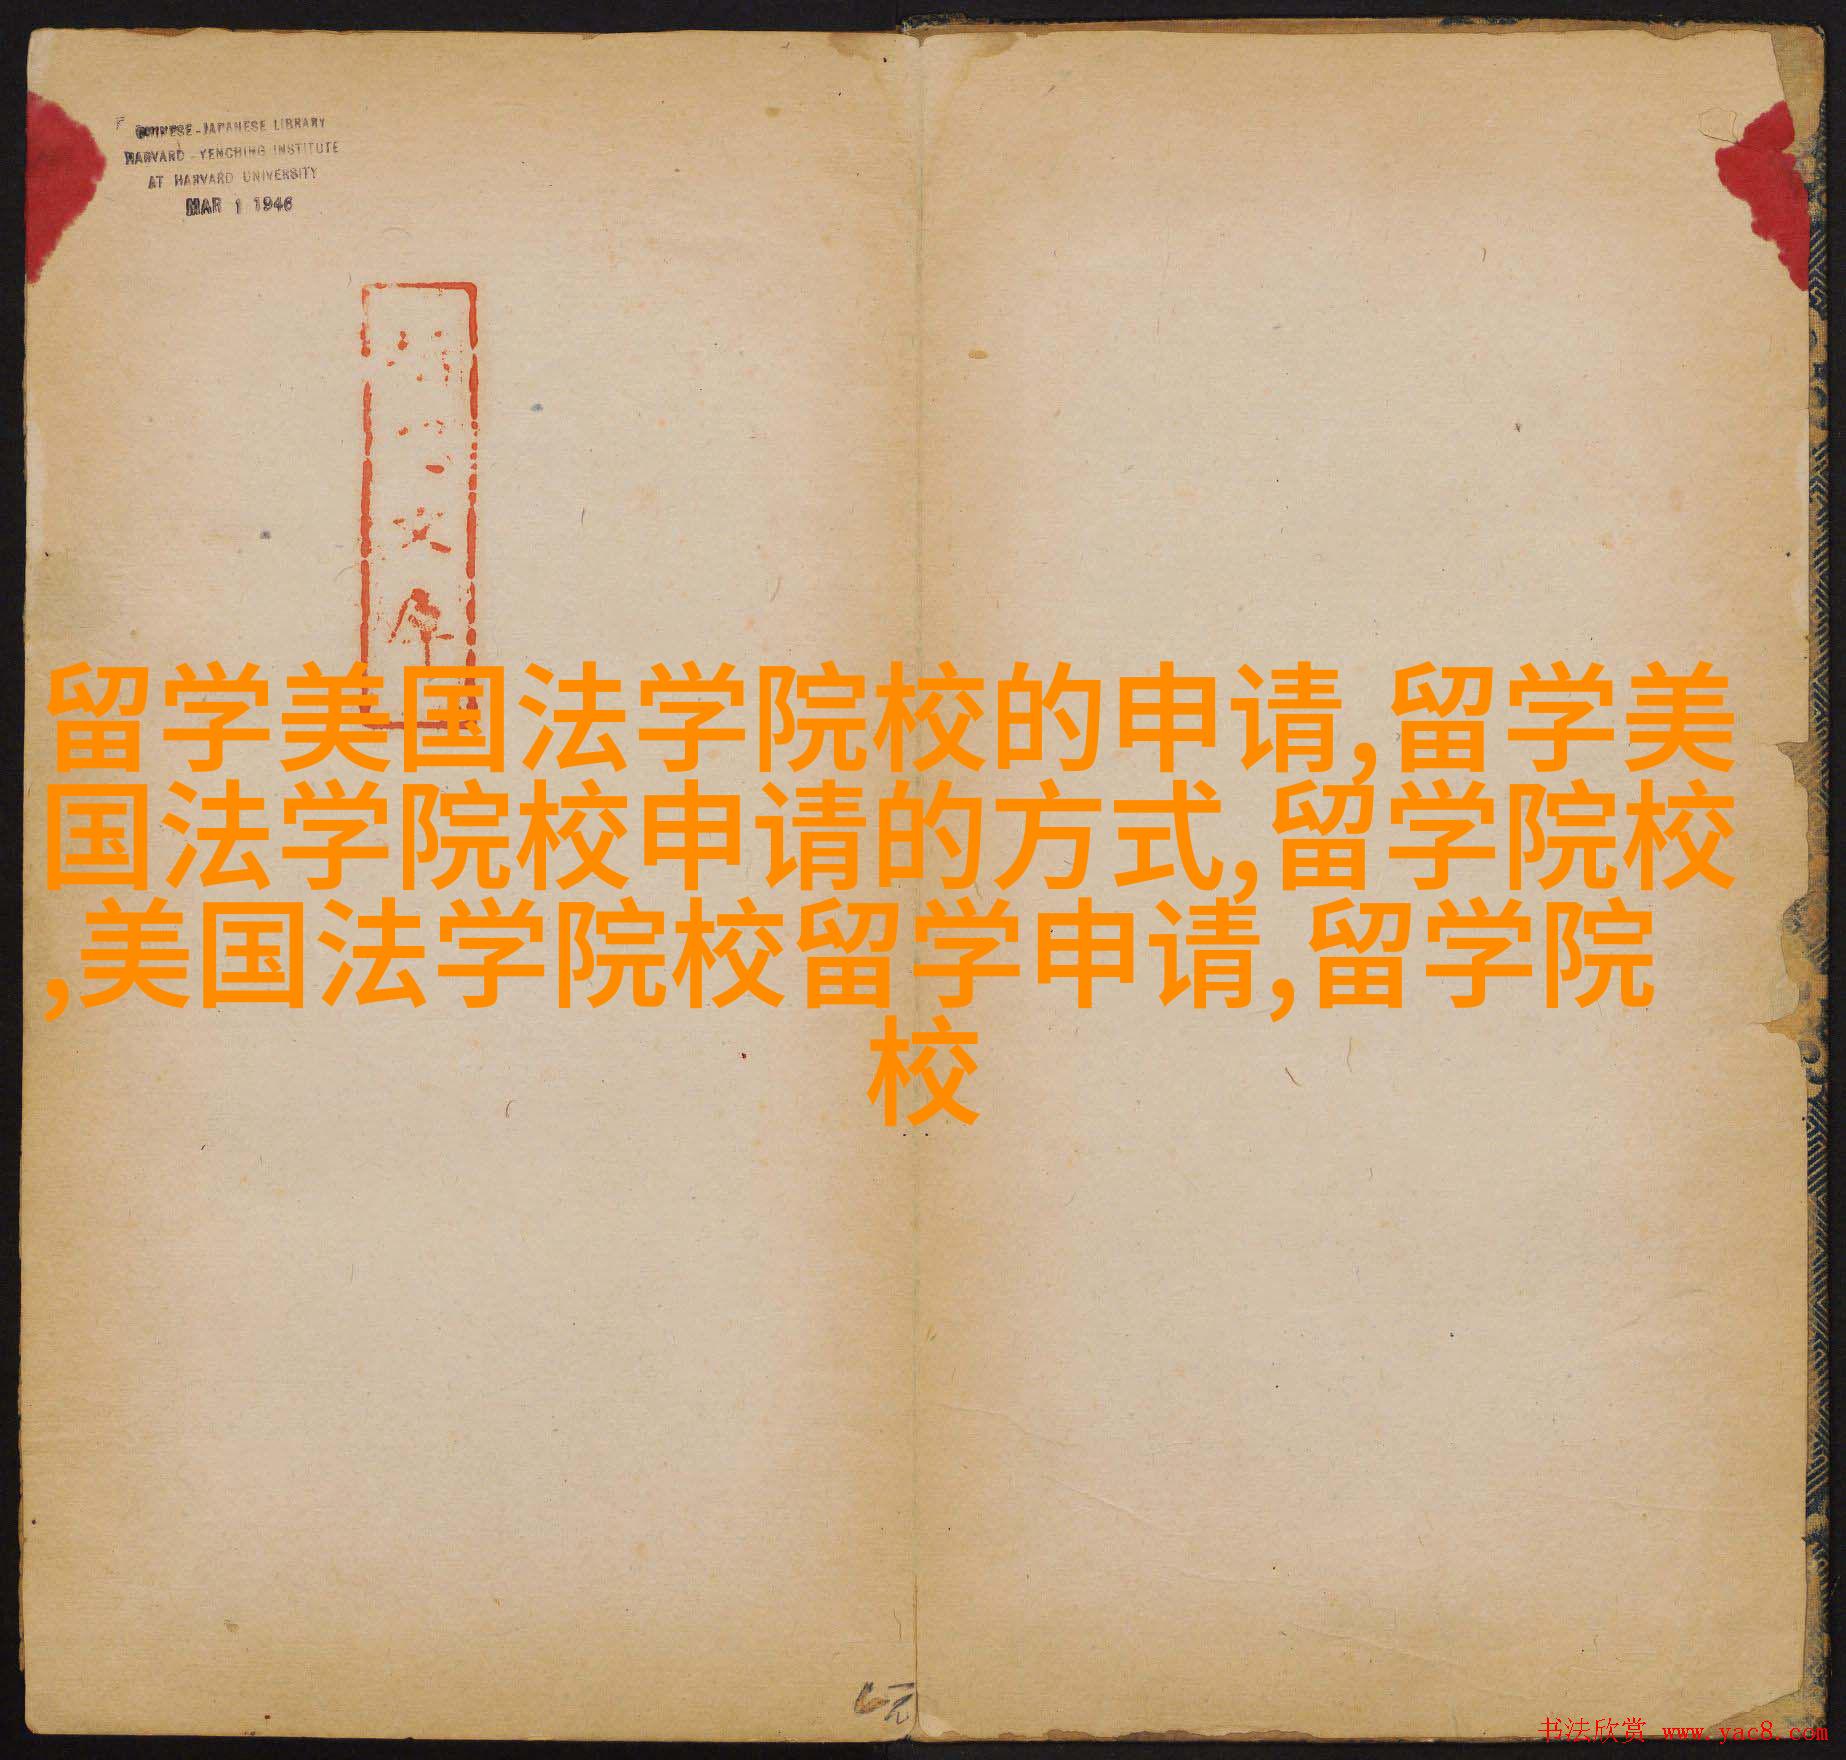 CHINESE-JAPANESE LIBRARY
HARVARD-YENCHING INSTITUTE
AT HARVARD UNIVERSITY
MAR 1 1946
文
庫
留学美国法学院校的申请,留学美
国法学院校申请的方式,留学院校
,美国法学院校留学申请,留学院
校
元
书法欣赏 www.yac8.com